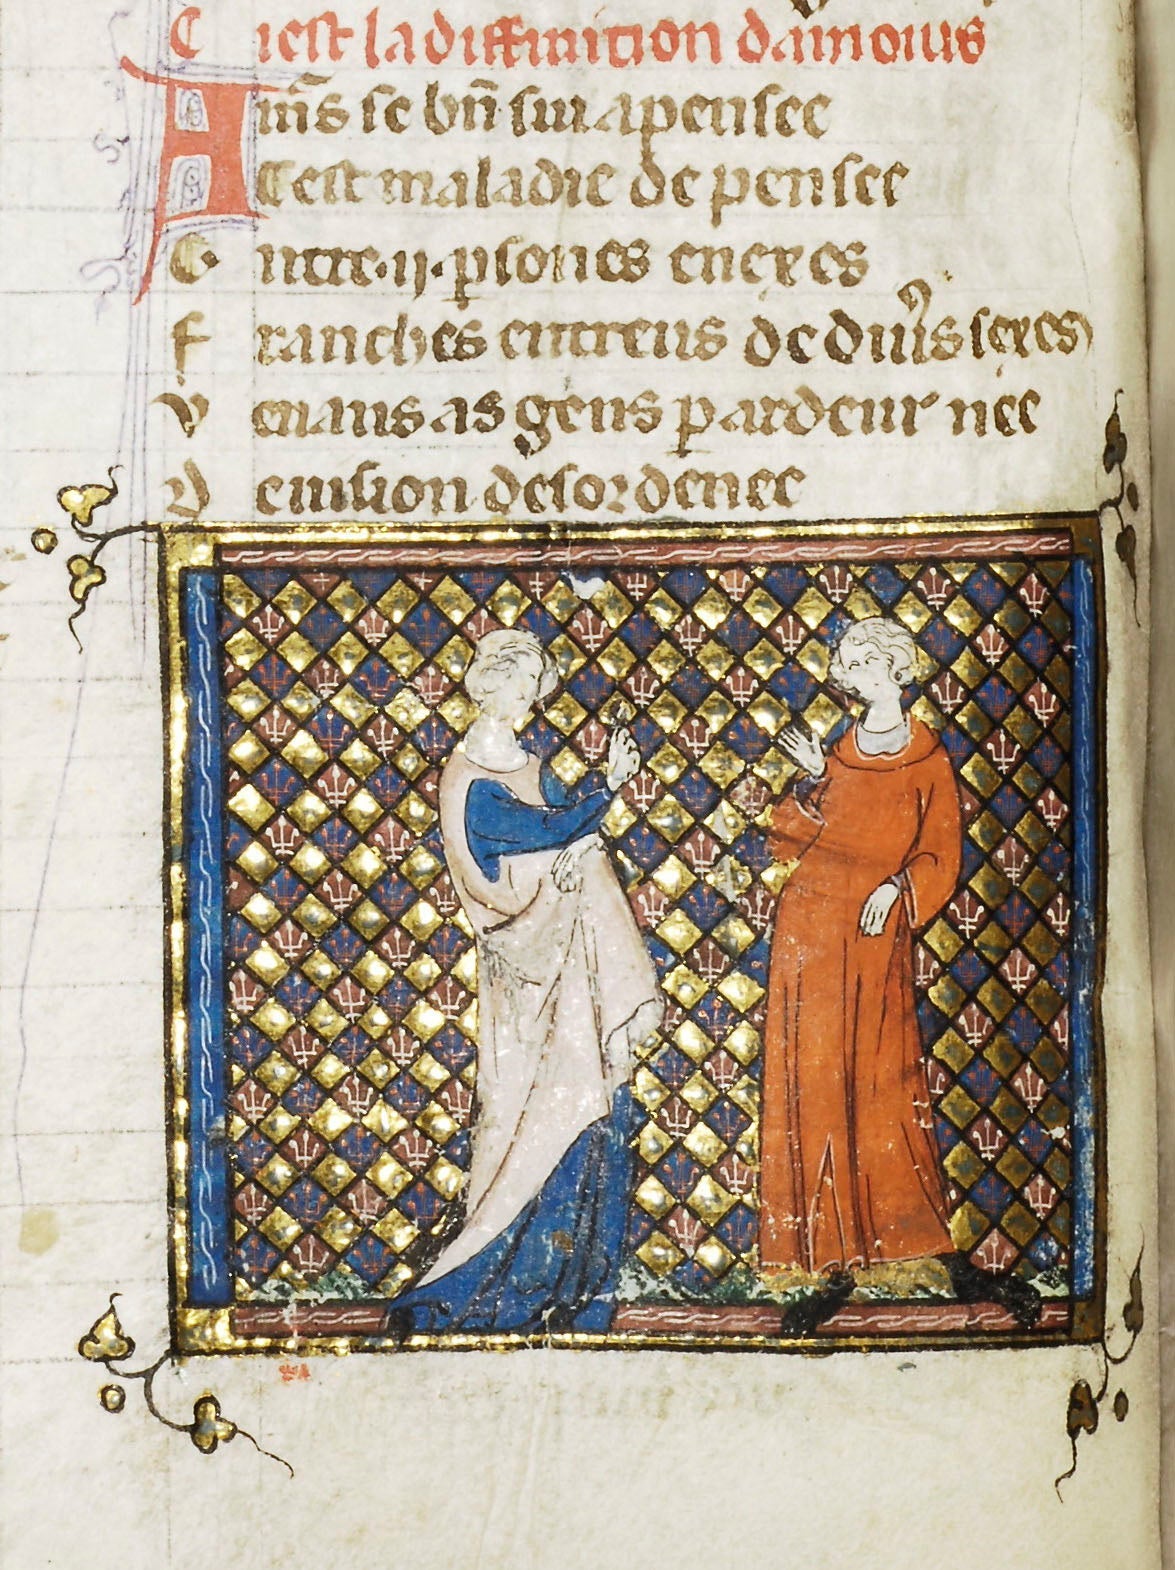 C iest la diffinition damours
Am̃s se bñ sui apensee
C est maladie de pensee
E ntre .ii. psones enexes
F ranches entreus de diu's sexes
V enans as gens par deur nee
D e uision desordenee